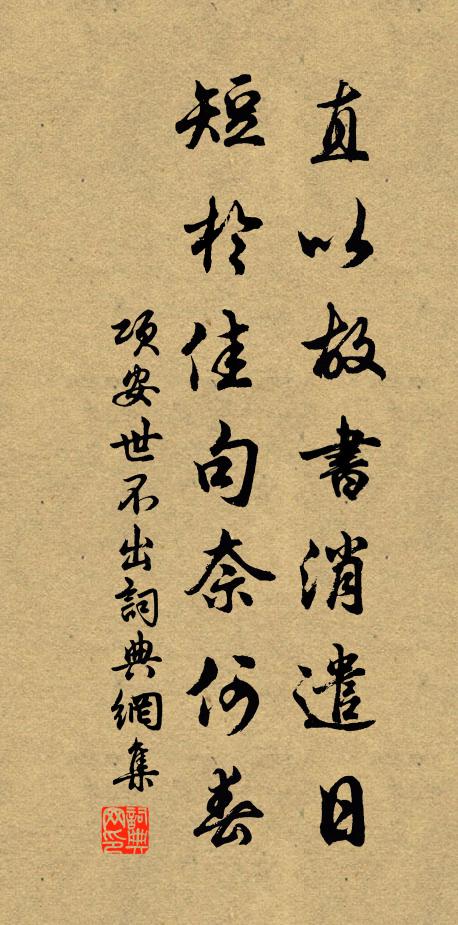 直以故書消遣日
短於佳句奈何春
項安世不出詞典網集
詞典網印